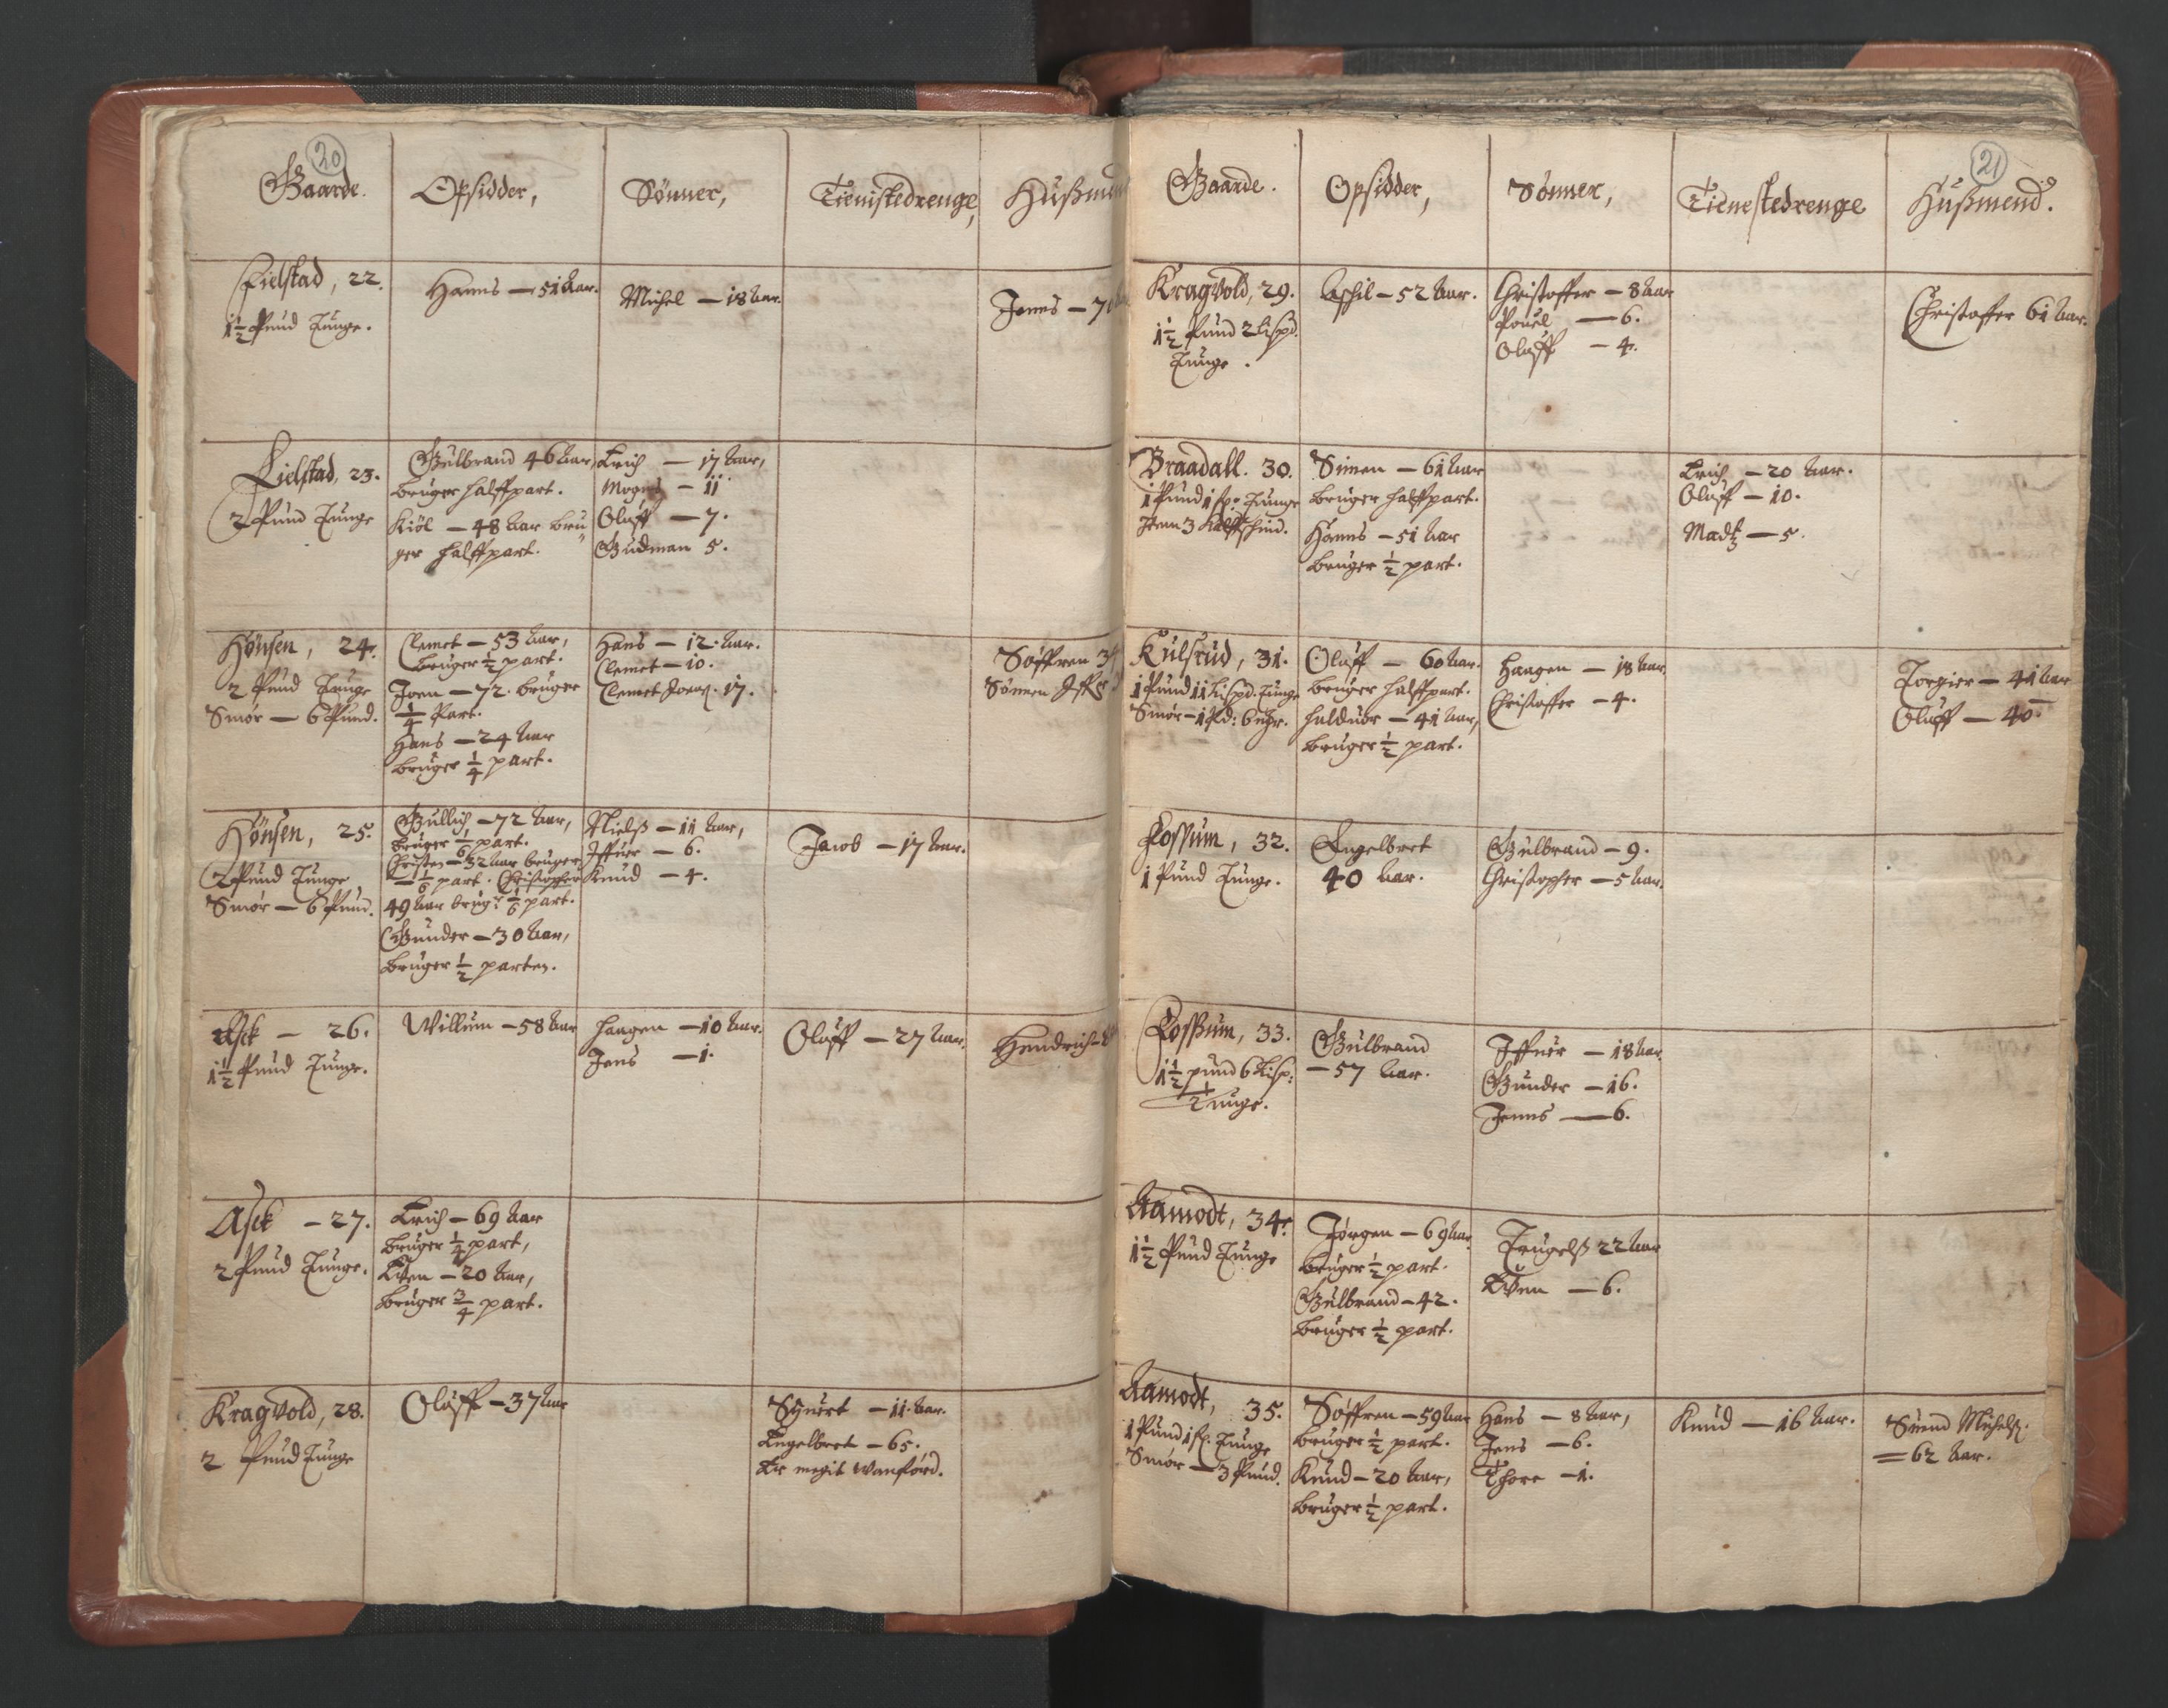 20
Gaarde.
Opsidder,
Sønner,
Tienistedrenge,
Fielstad, 22.
1½ Pund Tunge.
Hanns — 51 Aar.
Michel — 18 Aar.
Jenns —
Fielstad, 23.
2 Pund Tunge
Gulbrand 46 Aar,
bruger halffpart.
Kiøl — 48 Aar bru
ger halffpart.
Erich — 17 Aar,
Mogns — 11
Oluff — 7.
Gudman 5.
Hønsen, 24.
2 Pund Tunge
Smør — 6 Pund.
Clemet — 53 Aar,
bruger ½ part.
Joen — 72. bruger
¼ Part.
Hans — 24 Aar
bruger ¼ part.
Hans — 12. Aar.
Clemet — 10.
Clemet 17.
Søffren
Sønnen
Hønsen, 25.
2 Pund Tunge
Smør — 6 Pund.
Gullich — 72 Aar,
bruger 1/6 part.
Christen — 32 Aar bruger
— 1/6 part. Christopher
49 Aar brug: 1/6 part.
Gunder — 30 Aar,
bruger ½ parten.
Nielß — 11 Aar,
Iffuer — 6.
Knud — 4.
Jacob — 17 Aar.
Ask — 26.
1½ Pund Tunge.
Willum — 58 Aar
Haagen — 10 Aar.
Jens — 1.
Oluff — 27 Aar.
Hendrich
Ask — 27.
2 Pund Tunge.
Erich — 69 Aar
bruger ¼ part,
Even — 20 Aar,
bruger ¾ part.
Kragvold, 28.
2 Pund Tunge
Oluff — 37 Aar
Syuert — 11. Aar.
Engelbret — 65.
Er megit wanførd.
21
Gaarde.
Opsidder,
Sønner,
Tienestedrenge
Hußmend.
Kragvold, 29.
1½ Pund 2 Lispd.
Tunge.
Aschil — 52 Aar.
Christoffer — 8 Aar
Pouel — 6.
Oluff — 4.
Christoffer 61 Aar.
Braadall. 30.
1 Pund 1 sp: Tunge
Item 3 Kalffschind.
Simen — 61 Aar
bruger halffpart.
Hanns — 51 Aar
bruger ½ part.
Erich — 20 Aar.
Oluff — 10.
Madtz — 5.
Kulsrud, 31.
1 Pund 11 Lispd. Tunge
Smør — 1 Pd: 6 mhr.
Oluff — 60 Aar.
bruger halffpart.
Halduor — 41 Aar,
bruger ½ part.
Haagen — 18 Aar
Christoffer — 4.
Torgier — 41 Aar
Oluff — 40.
Fossum, 32.
1 Pund Tunge.
Engelbret
40 Aar.
Gulbrand — 9.
Christopher — 5 Aar.
Fossum, 33.
1½ pund 6 Lisp:
Tunge.
Gulbrand
— 57 Aar.
Iffuer — 18 Aar
Gunder — 16.
Jenns — 6.
Aamodt, 34.
1½ Pund Tunge
Jørgen — 69 Aar
bruger ½ part.
Gulbrand — 42.
bruger ½ part.
Trugelß 22 Aar
Even — 6.
Aamodt, 35.
1 Pund 1 sp. Tunge
Smør — 3 Pund.
Søffren — 59 Aar
bruger ½ part.
Knud — 20 Aar,
bruger ½ part.
Hans — 8 Aar,
Jens — 6.
Thore — 1.
Knud — 16 Aar.
Suend Michelß.
= 62 Aar.